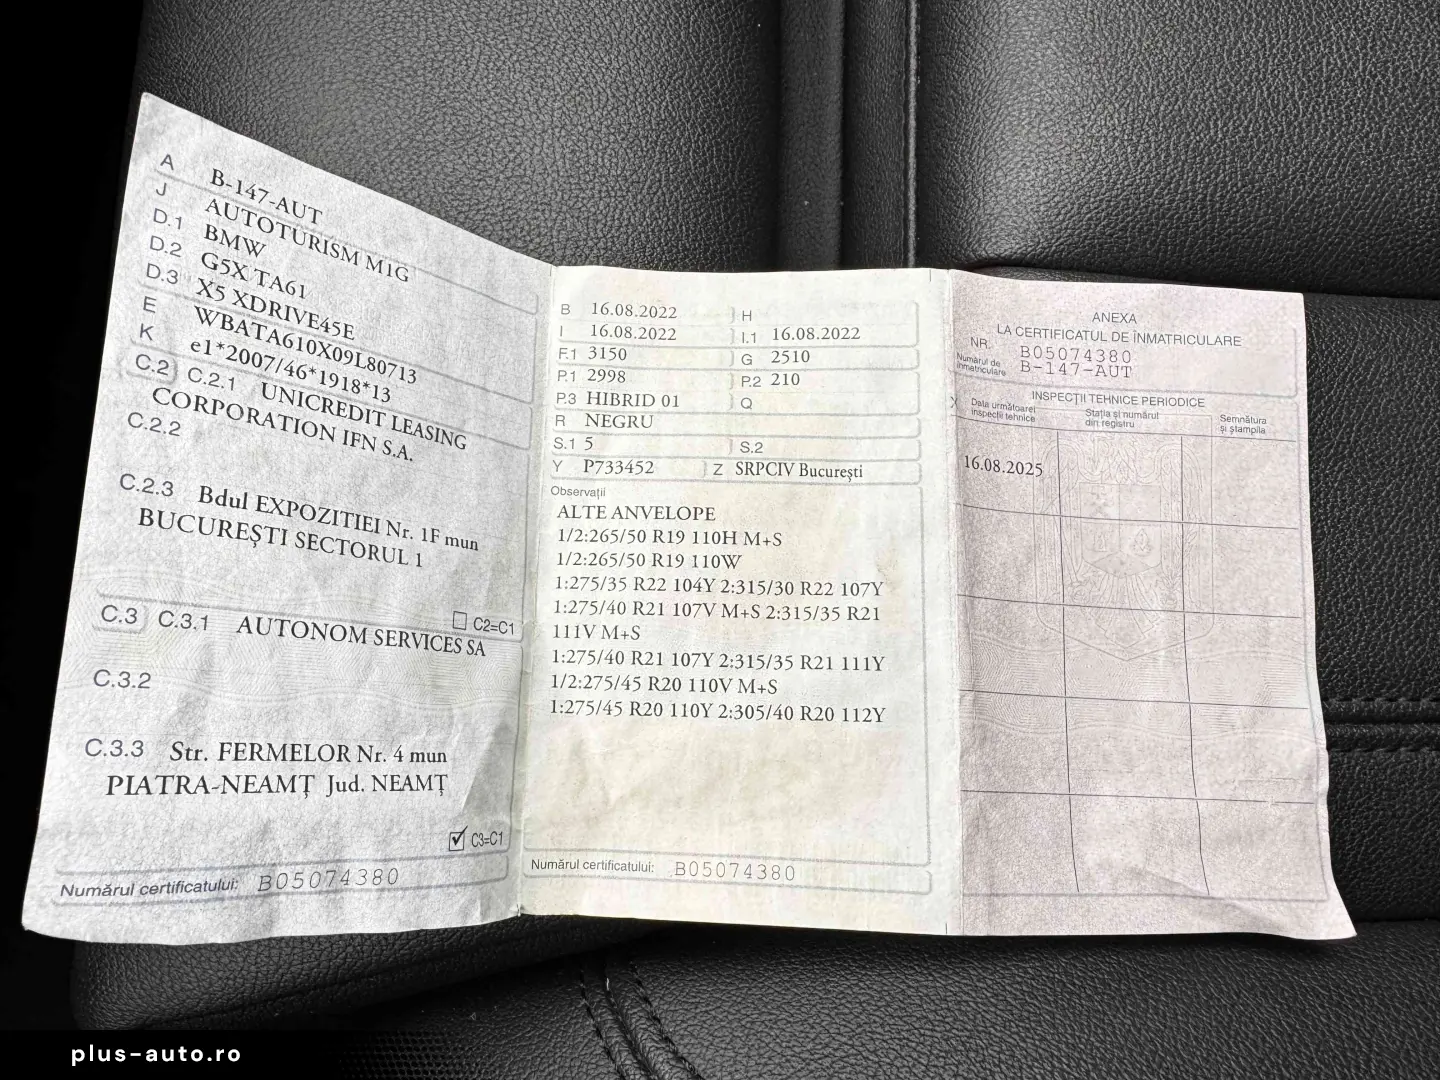 A B-147-AUT
J AUTOTURISM M1G
D.1 BMW
D.2 G5X TA61
D.3 X5 XDRIVE45E
E WBATA610X09L80713
K e1*2007/46*1918*13
C.2 C.2.1 UNICREDIT LEASING
CORPORATION IFN S.A.
C.2.2
C.2.3 Bdul EXPOZITIEI Nr. 1F mun
BUCUREŞTI SECTORUL 1
C2=C1
C.3 C.3.1 AUTONOM SERVICES SA
C.3.2
C.3.3 Str. FERMELOR Nr. 4 mun
PIATRA-NEAMŢ Jud. NEAMŢ
C3=C1
Numărul certificatului: B05074380
B 16.08.2022 H
I 16.08.2022 I.1 16.08.2022
F.1 3150 G 2510
P.1 2998 P.2 210
P.3 HIBRID 01 Q
R NEGRU
S.1 5 S.2
Y P733452 Z SRPCIV Bucureşti
Observaţii
ALTE ANVELOPE
1/2:265/50 R19 110H M+S
1/2:265/50 R19 110W
1:275/35 R22 104Y 2:315/30 R22 107Y
1:275/40 R21 107V M+S 2:315/35 R21
111V M+S
1:275/40 R21 107Y 2:315/35 R21 111Y
1/2:275/45 R20 110V M+S
1:275/45 R20 110Y 2:305/40 R20 112Y
Numărul certificatului: B05074380
ANEXA
LA CERTIFICATUL DE ÎNMATRICULARE
NR. B05074380
Numărul de înmatriculare B-147-AUT
X INSPECŢII TEHNICE PERIODICE
Data următoarei inspecţii tehnice
Staţia şi numărul din registru
Semnătura şi ştampila
16.08.2025
plus-auto.ro